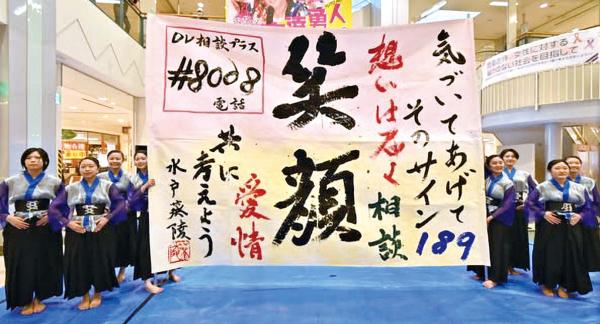 気づいてあげて
そのサイン
189
相談
笑顔
DV相談プラス
#8008
電話
共に
考えよう
愛情
水戸葵陵
女性に対する
のない社会を目指して